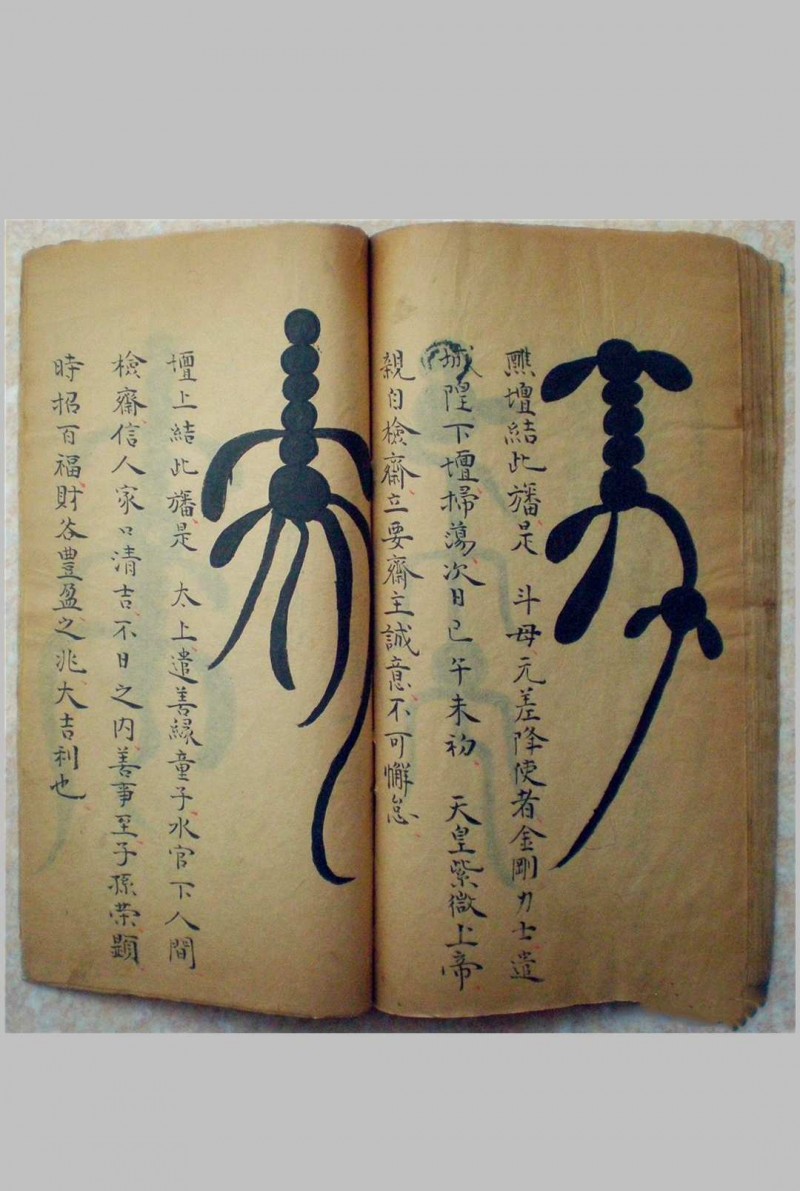 醮壇結此旛是 斗母元差降使者金剛力士遣
城隍下壇掃蕩次日已午未初 天皇紫微上帝
親自檢齋立要齋主誠意不可懈怠
壇上結此旛是 太上遣善緣童子水官下人間
檢齋信人家口清吉不日之內善事至子孫荣顯
時招百福財谷豐盈之兆大吉利也